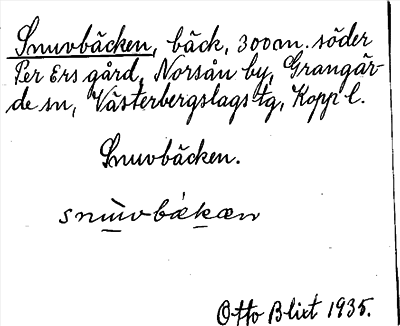 Snuvbäcken, bäck, 300 m. söder
Per Ers gård, Norsån by, Grangär-
de sn, Västerbergslags tg, Kopp l.
Snuvbäcken.
snùvbäkæn
Otto Blixt 1935.